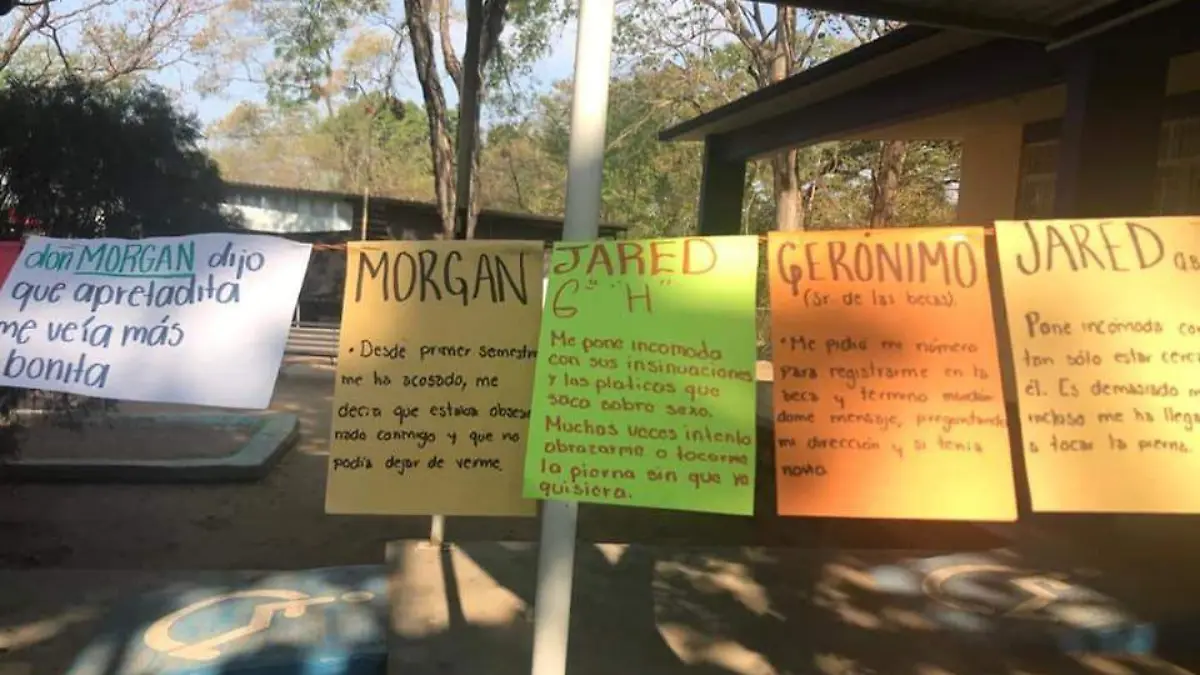 don MORGAN dijo
que apretadita
me veía más
bonita
MORGAN
• Desde primer semestre
me ha acosado, me
decia que estaba obsesio
nado conmigo y que no
podía dejar de verme.
JARED
6° "H"
Me pone incomoda
con sus insinuaciones
y las platicas que
saca sobre sexo.
Muchas veces intento
abrazarme o tocarme
la pierna sin que yo
quisiera.
GERÓNIMO
(Sr. de las becas).
• Me pidio mi número
para registrarme en la
beca y termino mandan
dome mensaje, preguntando
mi dirección y si tenia
novio
JARED
Pone incomoda
tan sólo estar
él. Es demasiado
incluso me ha
a tocar la pierna.